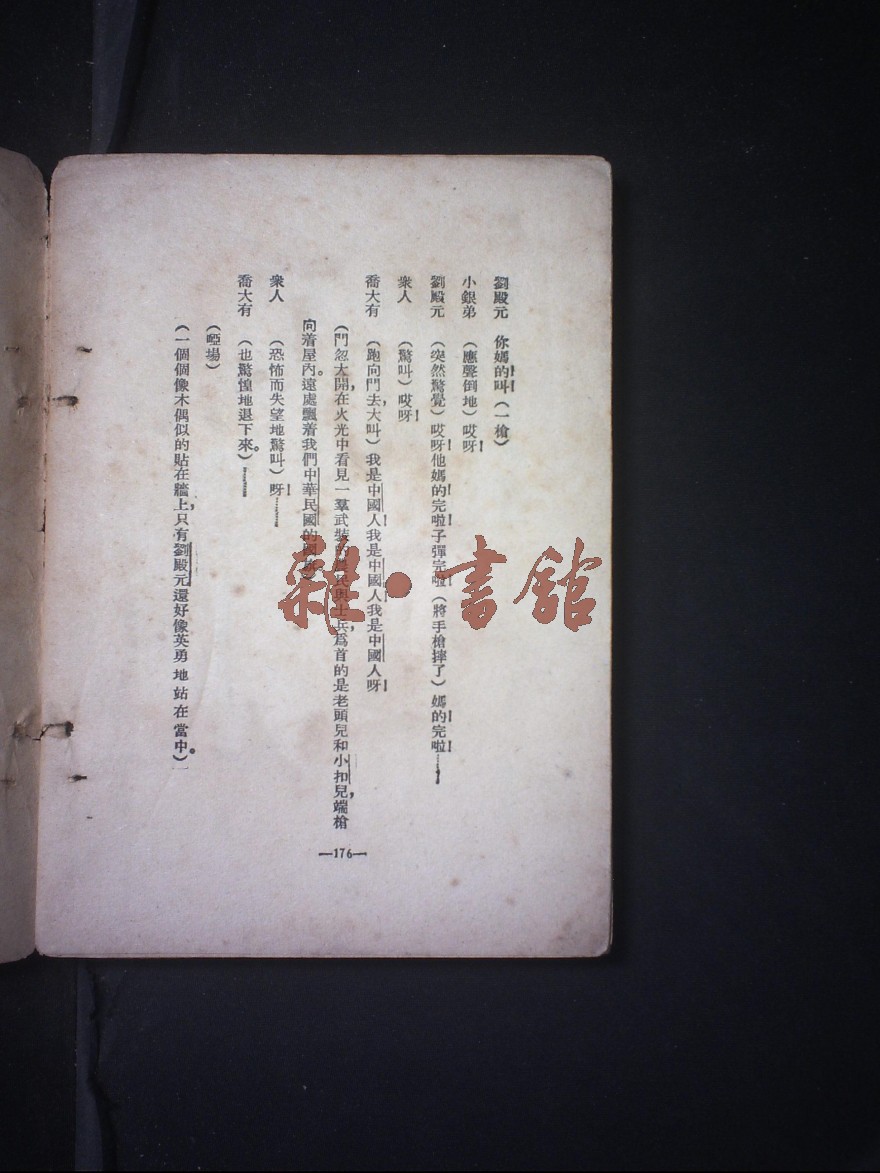 劉殿元　你媽的叫！（一槍）
小銀弟　（應聲倒地）哎呀！
劉殿元　（突然驚覺）哎呀！他媽的！完啦！子彈完啦！（將手槍摔了）媽的！完啦！……
衆人　（驚叫）哎呀！
喬大有　（跑向門去，大叫）我是中國人！我是中國人！我是中國人呀！
（門忽大開，在火光中看見一羣武裝的農民與士兵，爲首的是老頭兒和小扣兒，端槍
向着屋內。遠處飄着我們中華民國的國旗）
衆人　（恐怖而失望地驚叫）呀！……
喬大有　（也驚惶地退下來。）……
（啞場）
（一個個像木偶似的貼在牆上，只有劉殿元還好像英勇地站在當中。）
—176—
雜·書館